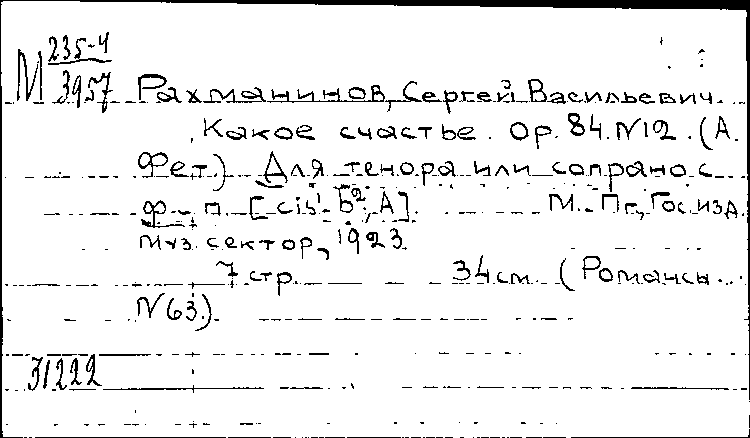 М 235-4
3957
Рахманинов, Сергей Васильевич.
Какое счастье. Op. 84. N12. (А.
Фет.) Для тенора или сопрано с
ф.-п. [cis¹-b², A]. М.-Пг., Гос. изд.
Муз. сектор, 1923.
7 стр. 34 см. (Романсы...
N63.)
31222